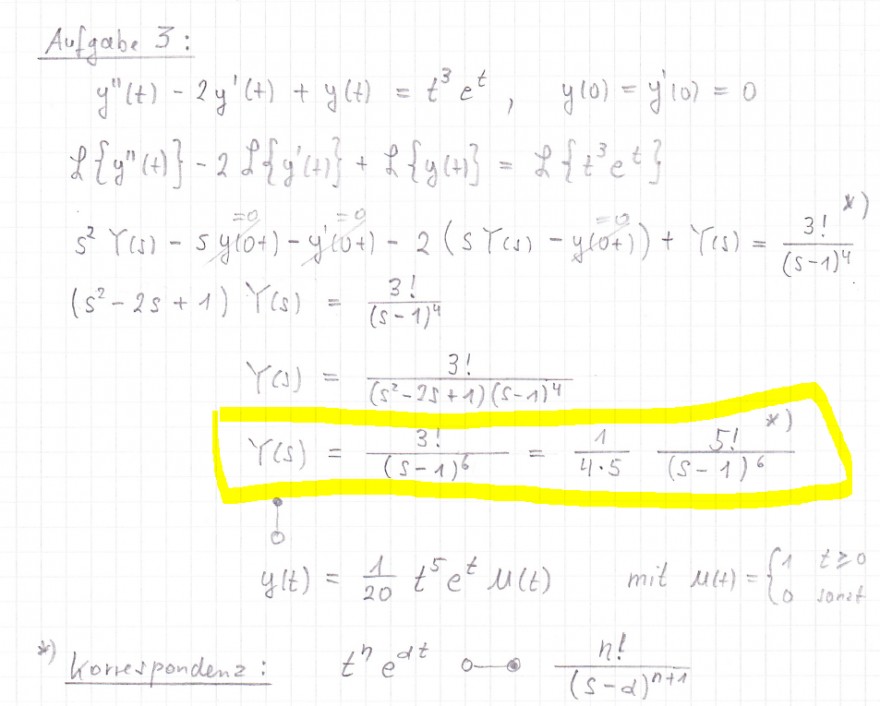 Aufgabe 3:
y''(t) - 2y'(t) + y(t) = t³ eᵗ, y(0) = y'(0) = 0
ℒ{y''(t)} - 2 ℒ{y'(t)} + ℒ{y(t)} = ℒ{t³eᵗ}
=0 =0 =0 *)
s² Y(s) - s y(0+) - y'(0+) - 2 (s Y(s) - y(0+)) + Y(s) = 3!/(s-1)⁴
(s² - 2s + 1) Y(s) = 3!/(s-1)⁴
Y(s) = 3!/((s²-2s+1)(s-1)⁴)
Y(s) = 3!/(s-1)⁶ = 1/(4·5) 5!/(s-1)⁶ *)
y(t) = 1/20 t⁵ eᵗ u(t) mit u(t) = {1 t≥0
0 sonst
*) Korrespondenz: tⁿ e^(αt) ○—● n!/(s-α)ⁿ⁺¹